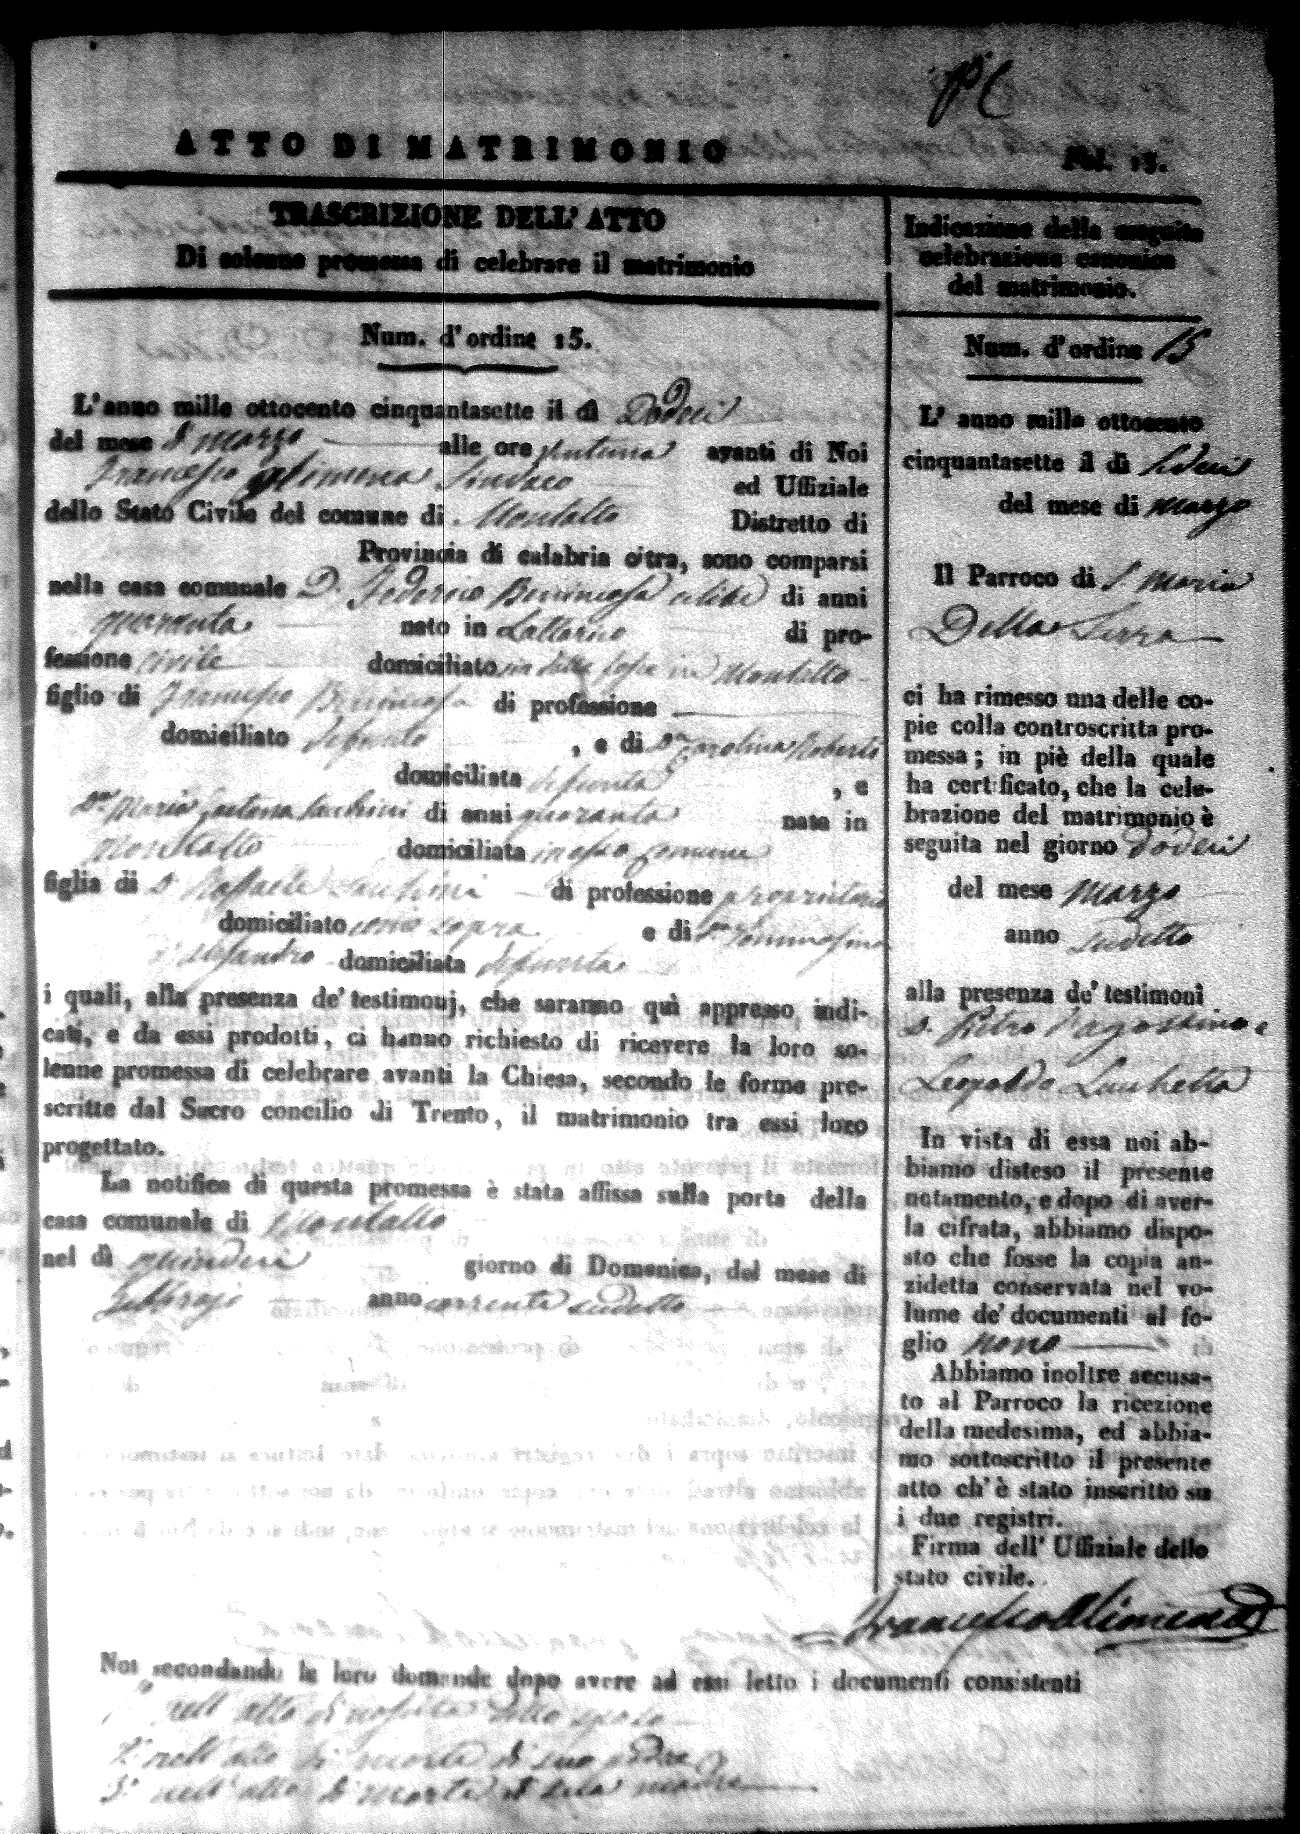 ATTO DI MATRIMONIO
Fol. 15.
TRASCRIZIONE DELL' ATTO
Di solenne promessa di celebrare il matrimonio
Num. d'ordine 15.
L'anno mille ottocento cinquantasette il dì Dodeci
del mese di marzo alle ore avanti di Noi
Francesco Alimena Sindaco ed Uffiziale
dello Stato Civile del comune di Montalto Distretto di
Provincia di calabria citra, sono comparsi
nella casa comunale D. Federico celibe di anni
quaranta nato in Lattarico di pro-
fessione civile domiciliato in Montalto
figlio di Francesco di professione
domiciliato defunto , e di D.a Carolina Roberti
domiciliata defunta , e
D.a Maria di anni quaranta nata in
Montalto domiciliata in essa comune
figlia di D. Raffaele di professione proprietario
domiciliato come sopra e di D.a Tommasina
d'Alessandro domiciliata defunta
i quali, alla presenza de' testimonj, che saranno quì appresso indi-
cati, e da essi prodotti, ci hanno richiesto di ricevere la loro so-
lenne promessa di celebrare avanti la Chiesa, secondo le forme pre-
scritte dal Sacro concilio di Trento, il matrimonio tra essi loro
progettato.
La notifica di questa promessa è stata affissa sulla porta della
casa comunale di Montalto
nel dì quindeci giorno di Domenica, del mese di
Febbrajo anno corrente sudetto
Indicazione della seguita
celebrazione canonica
del matrimonio.
Num. d'ordine 15
L' anno mille ottocento
cinquantasette il dì Dodeci
del mese di marzo
Il Parroco di S. Maria
Della Serra
ci ha rimesso una delle co-
pie colla controscritta pro-
messa; in piè della quale
ha certificato, che la cele-
brazione del matrimonio è
seguita nel giorno dodeci
del mese marzo
anno sudetto
alla presenza de' testimoni
D. Pietro d'agostino e
Leopoldo Luchetta
In vista di essa noi ab-
biamo disteso il presente
notamento, e dopo di aver-
la cifrata, abbiamo dispo-
sto che fosse la copia an-
zidetta conservata nel vo-
lume de' documenti al fo-
glio nono
Abbiamo inoltre accusa-
to al Parroco la ricezione
della medesima, ed abbia-
mo sottoscritto il presente
atto ch' è stato inscritto su
i due registri.
Firma dell' Uffiziale dello
stato civile.
Francesco Alimena
Noi secondando le loro domande dopo avere ad essi letto i documenti consistenti
1.° nell' atto di nascita dello sposo
2.° nell' atto di morte di suo padre
3.° nell' atto di morte di sua madre